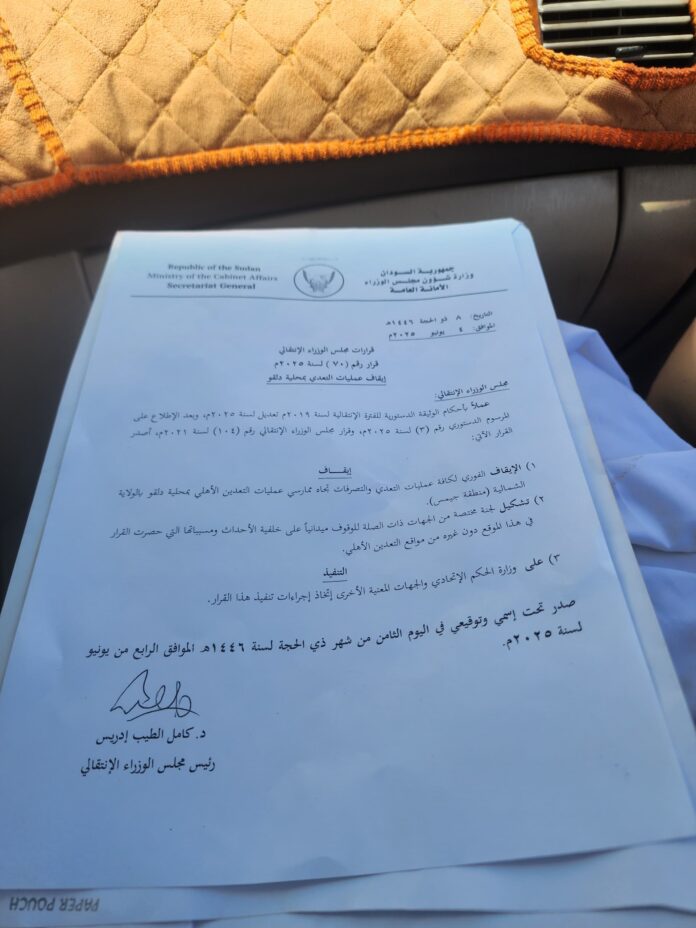 Republic of the Sudan
Ministry of the Cabinet Affairs
Secretariat General
جمهورية السودان
وزارة شؤون مجلس الوزراء
الأمانة العامة
التاريخ: ٨ ذو الحجة ١٤٤٦هـ
الموافق: ٤ يونيو ٢٠٢٥م
قرارات مجلس الوزراء الإنتقالي
قرار رقم (٧٠) لسنة ٢٠٢٥م
إيقاف عمليات التعدي بمحلية دلقو
مجلس الوزراء الإنتقالي:
عملاً بأحكام الوثيقة الدستورية للفترة الإنتقالية لسنة ٢٠١٩م تعديل لسنة ٢٠٢٥م، وبعد الإطلاع على
المرسوم الدستوري رقم (٣) لسنة ٢٠٢٥م، وقرار مجلس الوزراء الإنتقالي رقم (١٠٤) لسنة ٢٠٢١م، أصدر
القرار الآتي:
إيقــاف
١) الإيقاف الفوري لكافة عمليات التعدي والتصرفات تجاه ممارسي عمليات التعدين الأهلي بمحلية دلقو بالولاية
الشمالية (منطقة جيمس).
٢) تشكيل لجنة مختصة من الجهات ذات الصلة للوقوف ميدانياً على خلفية الأحداث ومسبباتها التي حصرت القرار
في هذا الموقع دون غيره من مواقع التعدين الأهلي.
التنفيذ
٣) على وزارة الحكم الإتحادي والجهات المعنية الأخرى إتخاذ إجراءات تنفيذ هذا القرار.
صدر تحت إسمي وتوقيعي في اليوم الثامن من شهر ذي الحجة لسنة ١٤٤٦هـ الموافق الرابع من يونيو
لسنة ٢٠٢٥م.
د. كامل الطيب إدريس
رئيس مجلس الوزراء الإنتقالي
PAPER POUCH